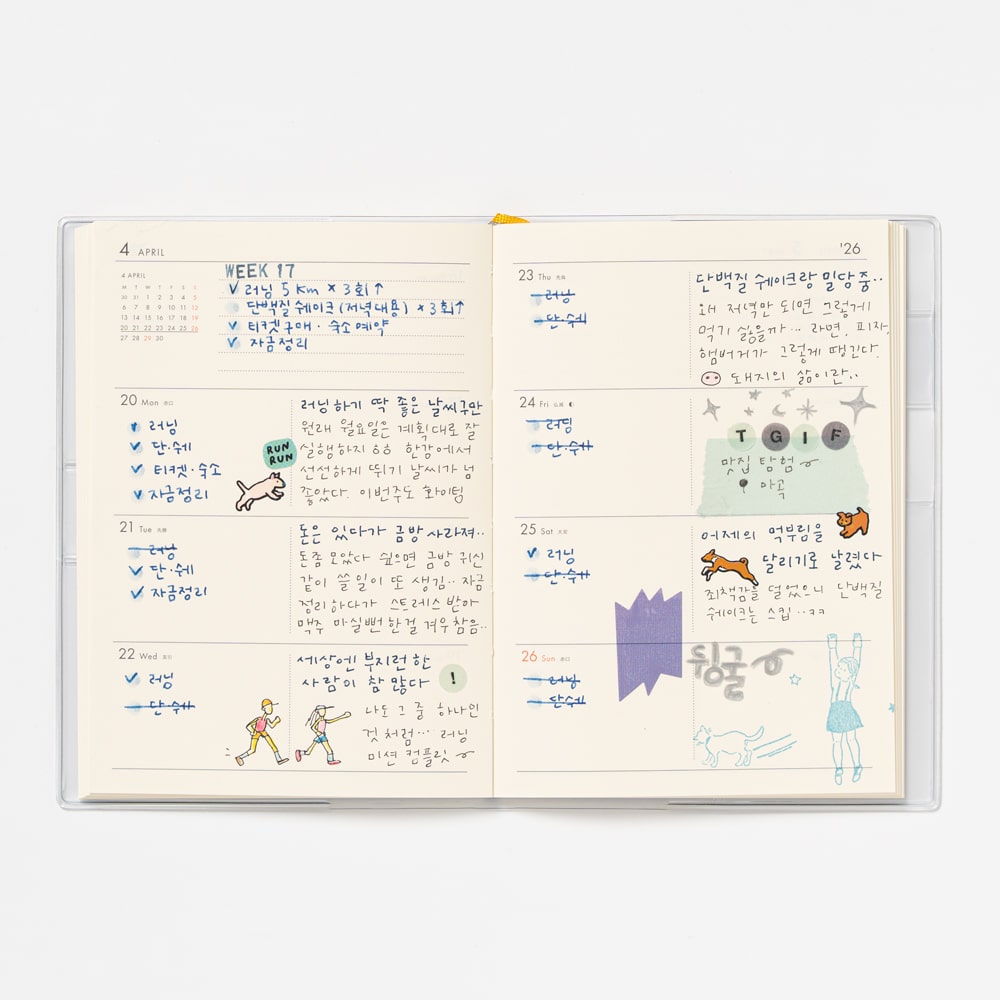 4 APRIL
4 APRIL
M T W T F S S
30 31 1 2 3 4 5
6 7 8 9 10 11 12
13 14 15 16 17 18 19
20 21 22 23 24 25 26
27 28 29 30
WEEK 17
✓ 러닝 5 Km × 3회↑
단백질 쉐이크(저녁대용) ×3회↑
✓ 티켓구매 · 숙소예약
✓ 자금정리
20 Mon
✓ 러닝
✓ 단·쉐
✓ 티켓·숙소
✓ 자금정리
RUN
RUN
러닝하기 딱 좋은 날씨구만
원래 월요일은 계획대로 잘
실행하지 ㅎㅎ 한강에서
선선하게 뛰기 날씨가 넘
좋았다. 이번주도 화이팅
21 Tue
러닝
✓ 단·쉐
✓ 자금정리
돈은 있다가 금방 사라져..
돈좀 모았다 싶으면 금방 귀신
같이 쓸 일이 또 생김.. 자금
정리하다가 스트레스 받아
맥주 마실뻔 한걸 겨우 참음..
22 Wed
✓ 러닝
단·쉐
세상엔 부지런한
사람이 참 많다
!
나도 그 중 하나인
것 처럼… 러닝
미션 컴플릿
'26
23 Thu
러닝
단·쉐
단백질 쉐이크랑 밀당중..
왜 저녁만 되면 그렇게
먹기 싫을까… 라면, 피자,
햄버거가 그렇게 땡긴다.
돼지의 삶이란..
24 Fri
러닝
단·쉐
TGIF
맛집 탐험
마곡
25 Sat
✓ 러닝
단·쉐
어제의 먹부림을
달리기로 날렸다
죄책감을 덜었으니 단백질
쉐이크는 스킵..ㅋㅋ
26 Sun
러닝
단·쉐
뒹굴